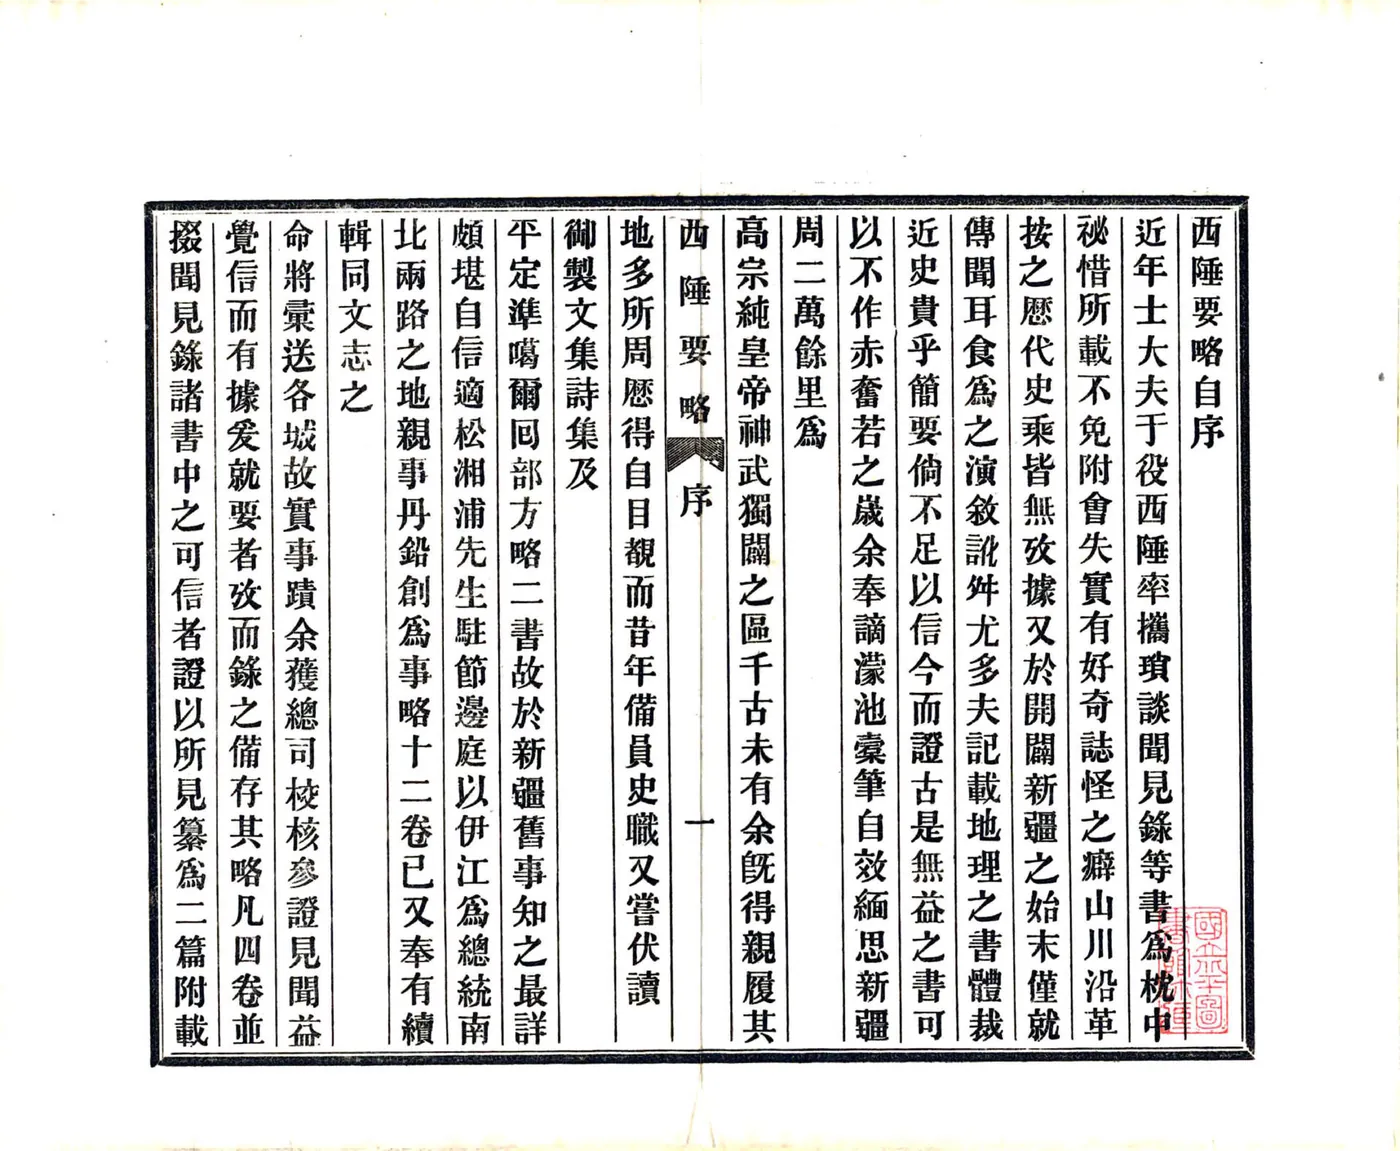 西陲要略自序
近年士大夫于役西陲率攜瑣談聞見錄等書爲枕中
祕惜所載不免附會失實有好奇誌怪之癖山川沿革
按之歷代史乘皆無攷據又於開闢新疆之始末僅就
傳聞耳食爲之演敘訛舛尤多夫記載地理之書體裁
近史貴乎簡要倘不足以信今而證古是無益之書可
以不作赤奮若之歲余奉謫濛池橐筆自效緬思新疆
周二萬餘里爲
高宗純皇帝神武獨闢之區千古未有余旣得親履其
西陲要略 序 一
地多所周歷得自目覩而昔年備員史職又嘗伏讀
御製文集詩集及
平定準噶爾回部方略二書故於新疆舊事知之最詳
頗堪自信適松湘浦先生駐節邊庭以伊江爲總統南
北兩路之地親事丹鉛創爲事略十二卷已又奉有續
輯同文志之
命將彙送各城故實事蹟余獲總司校核參證見聞益
覺信而有據爰就要者攷而錄之備存其略凡四卷並
掇聞見錄諸書中之可信者證以所見纂爲二篇附載